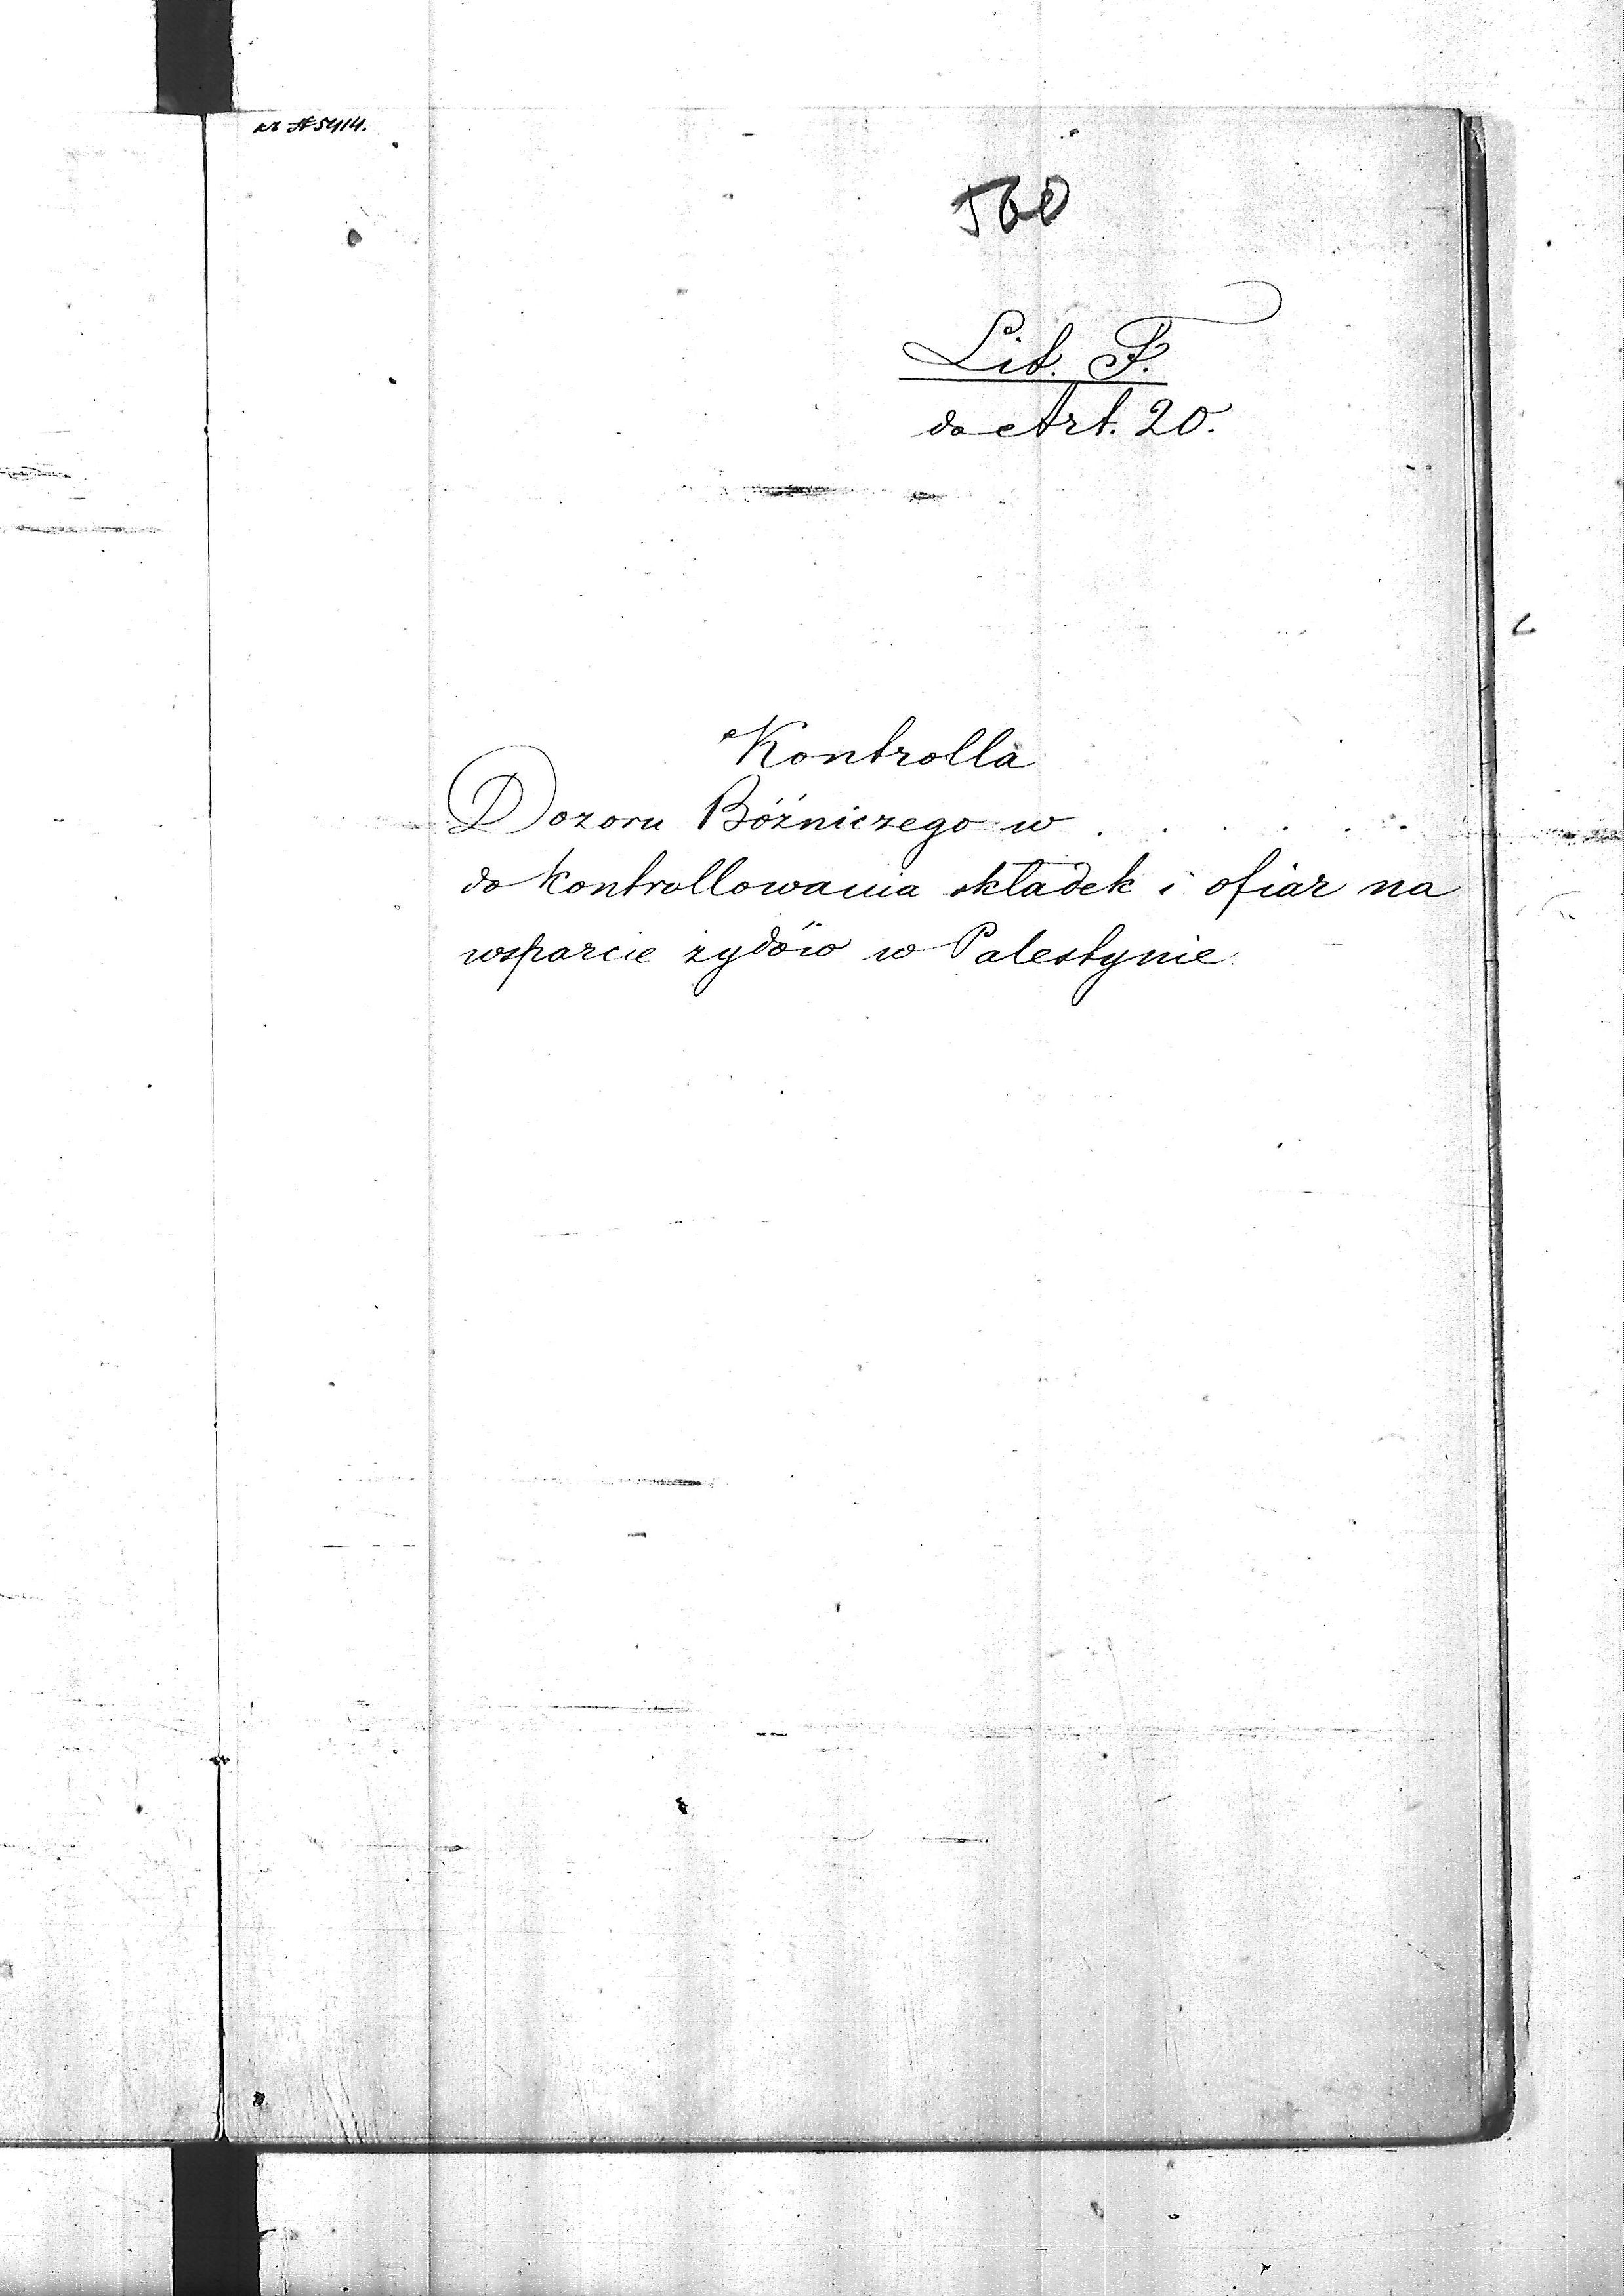 к № 5414.
560
Lit. F.
do Art. 20.
Kontrolla
Dozoru Bóżniczego w . . . . . .
do kontrollowania składek i ofiar na
wsparcie żydów w Palestynie.